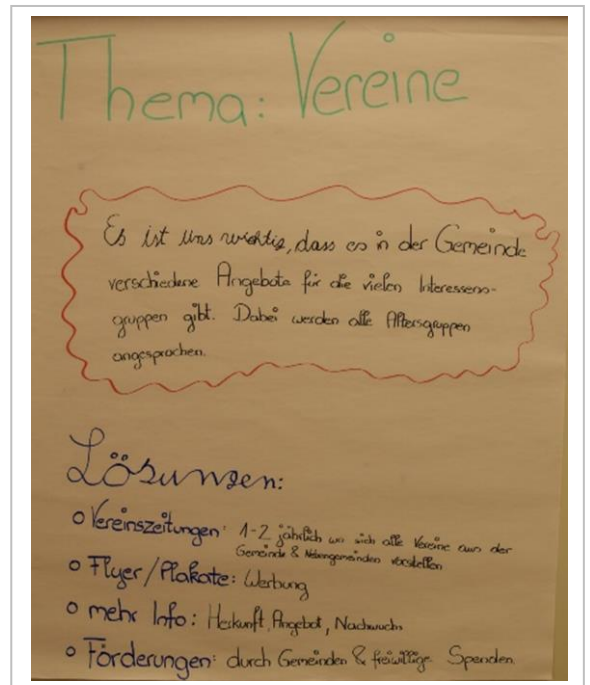 Thema: Vereine
Es ist uns wichtig, dass es in der Gemeinde
verschiedene Angebote für die vielen Interessens-
gruppen gibt. Dabei werden alle Altersgruppen
angesprochen.
Lösungen:
o Vereinszeitungen: 1-2 jährlich wo sich alle Vereine aus der
Gemeinde & Nebengemeinden vorstellen
o Flyer/Plakate: Werbung
o mehr Info: Herkunft, Angebot, Nachwuchs
o Förderungen: durch Gemeinden & freiwillige Spenden